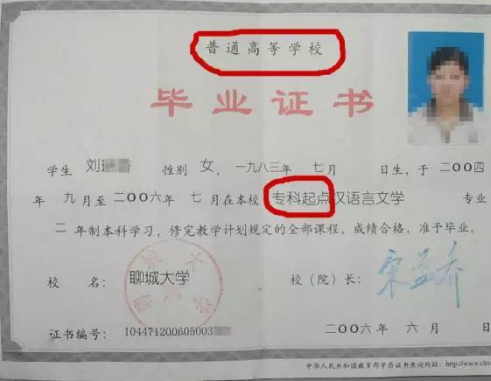 普通高等学校
毕业证书
学生 刘 性别 女，一九八三年 七月 日生，于 二〇〇四
年 九月至二〇〇六年 七月在本校 专科起点汉语言文学 专业
二 年制本科学习，修完教学计划规定的全部课程，成绩合格，准予毕业。
校 名： 聊城大学 校（院）长：
聊城大学
证书编号： 104471200605003 二〇〇六年 六月 日
中华人民共和国教育部学历证书查询网址：http://www.chs